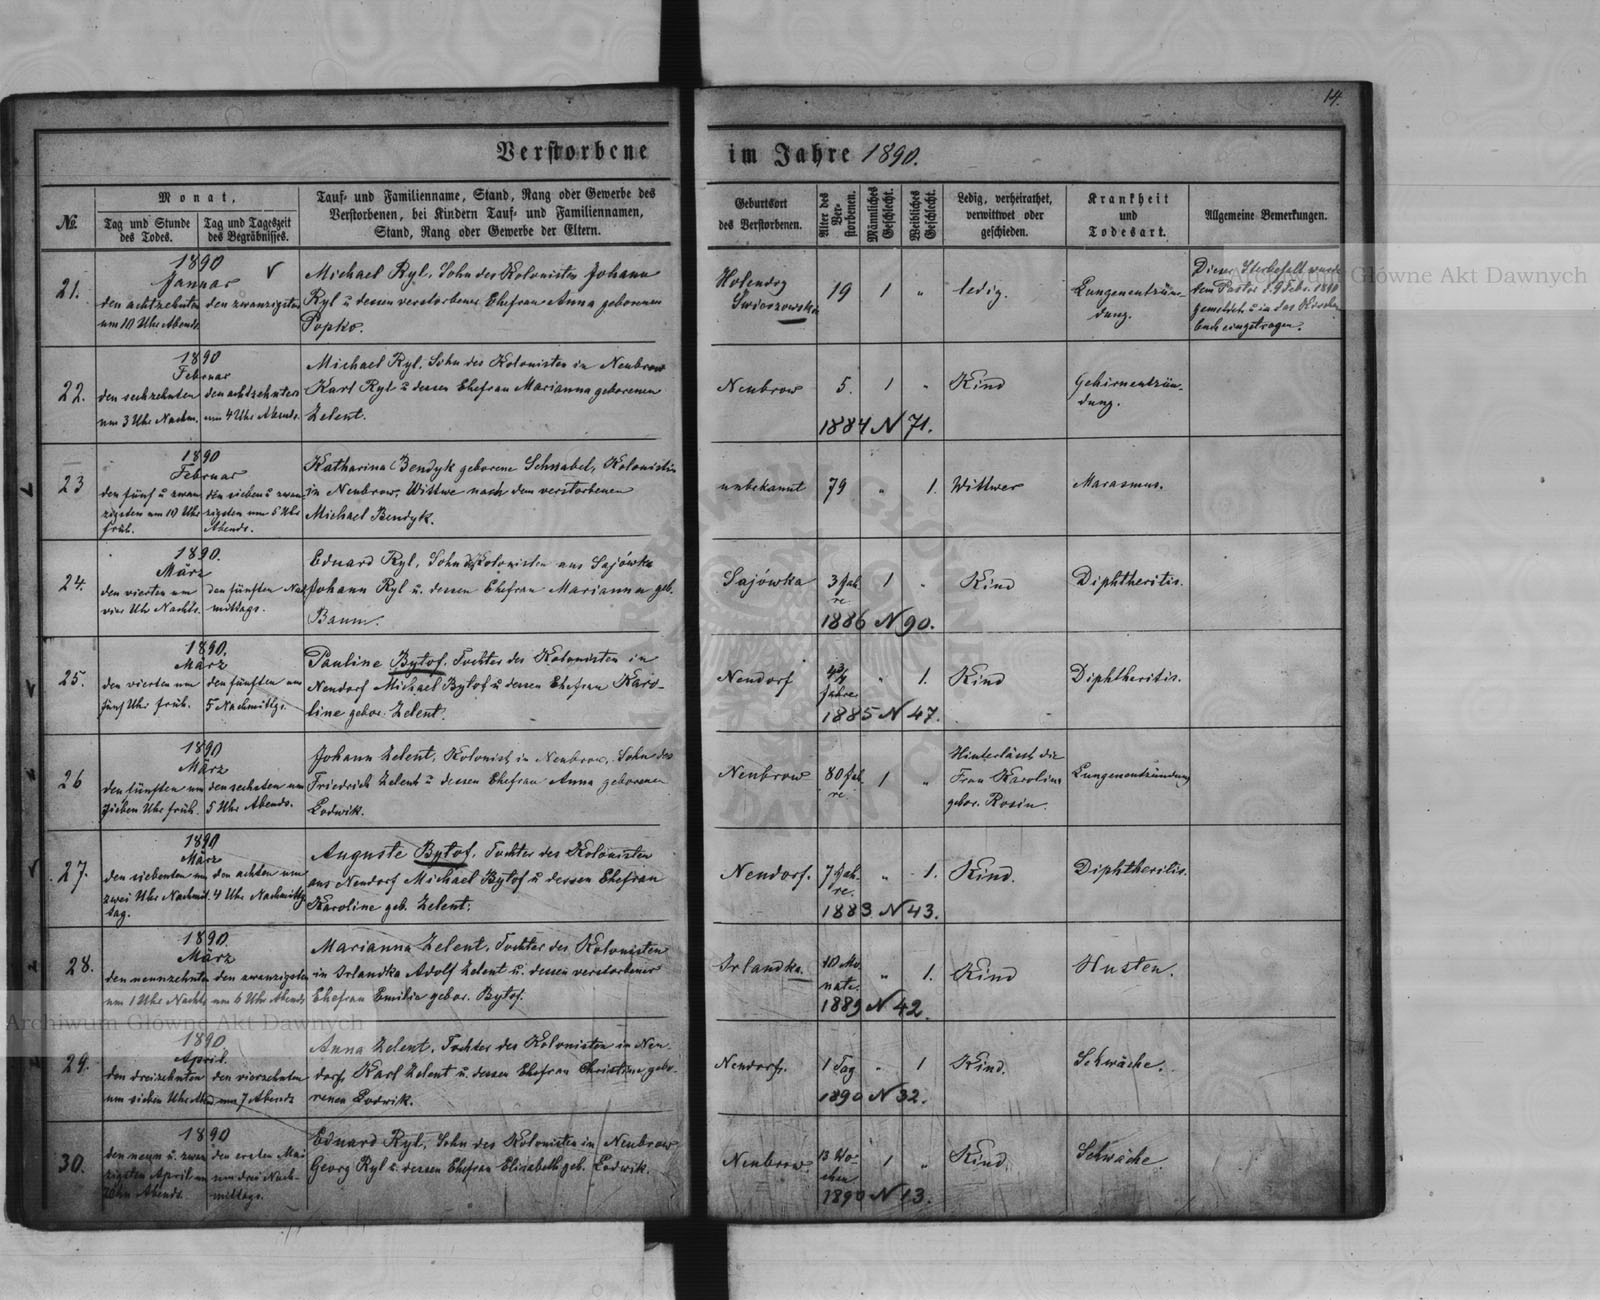 14.
Verstorbene im Jahre 1890.
№.
Monat,
Tag und Stunde des Todes.
Tag und Tageszeit des Begräbnisses.
Tauf- und Familienname, Stand, Rang oder Gewerbe des
Verstorbenen, bei Kindern Tauf- und Familiennamen,
Stand, Rang oder Gewerbe der Eltern.
Geburtsort
des Verstorbenen.
Alter des Ver-
storbenen.
Männliches
Geschlecht.
Weibliches
Geschlecht.
Ledig, verheirathet,
verwittwet oder
geschieden.
Krankheit
und
Todesart.
Allgemeine Bemerkungen.
21.
1890
Januar
den achtzehnten
um 10 Uhr Abends
den zwanzigsten
Michael Ryl, Sohn des Kolonisten Johann
Ryl u dessen verstorbener Ehefrau Anna geborenen
Popko.
Holendry
Swierszowska
19
1
"
ledig.
Lungenentzün-
dung.
Dieser Sterbefall wurde
dem Pastor d. 9 Febr. 1890
gemeldet u in das Kirchen
buch eingetragen.
22.
1890
Februar
den sechzehnten
um 3 Uhr Nachm.
den achtzehnten
um 4 Uhr Abends.
Michael Ryl, Sohn des Kolonisten in Neubrow
Karl Ryl u dessen Ehefrau Marianna geborenen
Zelent.
Neubrow
5.
1
"
Kind
Gehirnentzün-
dung.
1884 N 71.
23
1890
Februar
den fünf u zwan
zigsten um 10 Uhr
früh.
den sieben u zwan
zigsten um 5 Uhr
Abends.
Katharina Bendyk geborene Schnabel, Kolonistin
in Neubrow, Wittwe nach dem verstorbenen
Michael Bendyk.
unbekannt
79
"
1.
Wittwer
Marasmus.
24.
1890.
März
den vierten um
vier Uhr Nachts.
den fünften Nach
mittags.
Eduard Ryl, Sohn des Kolonisten aus Sajówka
Johann Ryl u. dessen Ehefrau Marianna geb.
Baum.
Sajówka
3 Jah
re
1
"
Kind
Diphtheritis.
1886 N 90.
25.
1890.
März
den vierten um
fünf Uhr früh.
den fünften um
5 Nachmittgs.
Pauline Bytof, Tochter des Kolonisten in
Neudorf Michael Bytof u dessen Ehefrau Karo-
line gebor. Zelent.
Neudorf
4 3/4
Jahre
"
1.
Kind
Diphtheritis.
1885 N 47.
26
1890
März
den fünften um
sieben Uhr früh.
den sechsten um
5 Uhr Abends.
Johann Zelent, Kolonist in Neubrow, Sohn des
Friedrich Zelent u dessen Ehefrau Anna geborenen
Lodwik.
Neubrow
80 Jah
re
1
"
Hinterlässt die
Frau Karoline
gebor. Rosin.
Lungenentzündung
27.
1890
März
den siebenten um
zwei Uhr Nachmit.
tag.
den achten um
4 Uhr Nachmittg
Auguste Bytof, Tochter des Kolonisten
aus Neudorf Michael Bytof u dessen Ehefrau
Karoline geb. Zelent.
Neudorf.
7 Jah-
re.
"
1.
Kind.
Diphtheritis.
1883 N 43.
28.
1890.
März
den neunzehnten
um 1 Uhr Nachts
den zwanzigsten
um 6 Uhr Abends
Marianna Zelent, Tochter des Kolonisten
in Irlandka Adolf Zelent u. dessen verstorbener
Ehefrau Emilia gebor. Bytof.
Irlandka.
10 Mo.
nate.
"
1.
Kind
Husten.
1889 N 42.
29.
1890
April
den dreizehnten
um sieben Uhr Abd
den vierzehnten
um 7 Abends
Anna Zelent, Tochter des Kolonisten in Neu
dorf, Karl Zelent u. dessen Ehefrau Christine gebo-
renen Lodwik.
Neudorf.
1 Tag
"
1
Kind.
Schwäche.
1890 N 32.
30.
1890
den neun u. zwan
zigsten April um
Zehn Abends.
den ersten Mai
um drei Nach-
mittags.
Eduard Ryl, Sohn des Kolonisten in Neubrow
Georg Ryl u. dessen Ehefrau Elisabeth geb. Lodwik.
Neubrow.
13 Wo-
chen
1
"
Kind.
Schwäche.
1890 N 13.
Archiwum Główne Akt Dawnych
Archiwum Główne Akt Dawnych